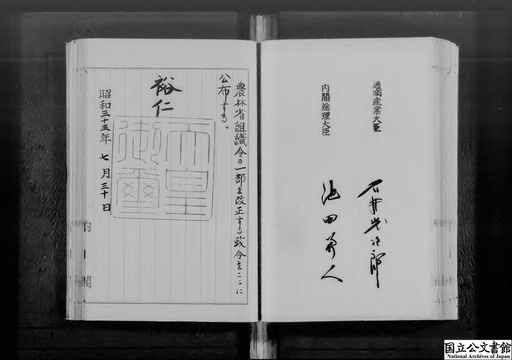 通商産業大臣
石井光次郎
内閣総理大臣
池田勇人
農林省組織令の一部を改正する政令をここに
公布する。
裕仁
天皇
御璽
昭和三十五年 七月三十日
内閣
国立公文書館
National Archives of Japan